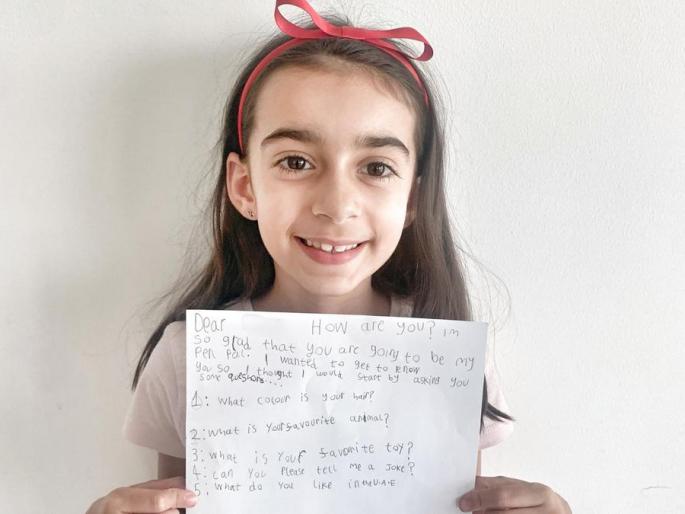 Dear How are you? im
so glad that you are going to be my
Pen Pal. I wanted to get to know
you so I thought I would start by asking you
some questions....
1: What colour is your hair?
2: What is your favourite animal?
3: What is your favorite toy?
4: Can you Please tell me a joke?
5: What do you like in the U.A.E